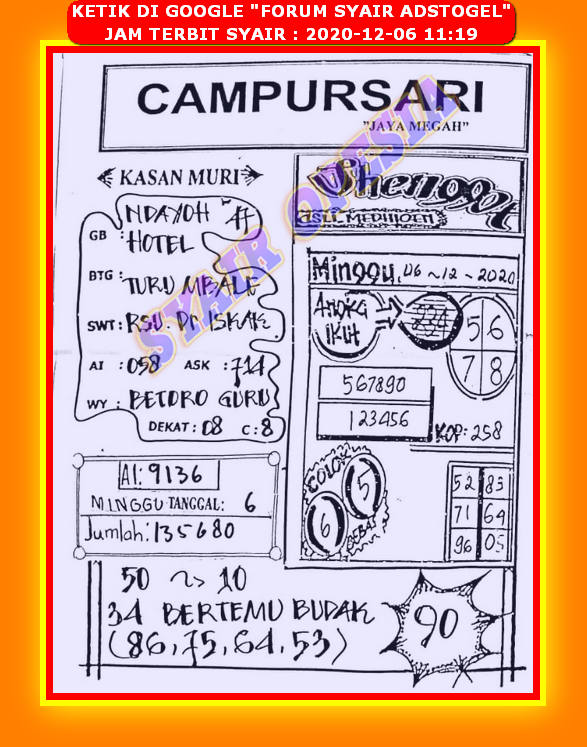 KETIK DI GOOGLE "FORUM SYAIR ADSTOGEL"
JAM TERBIT SYAIR : 2020-12-06 11:19
CAMPURSARI
"JAYA MEGAH"
SYAIR ONESIA
KASAN MURI
GB : NDAYOH #
HOTEL
BTG : TURU MBALE
SWT : RSU. Dr ISKAK
AI : 058 ASK : 714
WY : BETORO GURU
DEKAT : 08 C : 8
AI: 9136
MINGGU TANGGAL: 6
Jumlah: 135680
Shenggot
ASLI
Minggu, 06~12~2020
ANGKA
IKUT
5 6
7 8
567890
123456
KOP: 258
COLOK
5
6
BEBAS
52 83
71 64
96 05
50 ~> 10
34 BERTEMU BUDAK
(86,75,64,53)
90